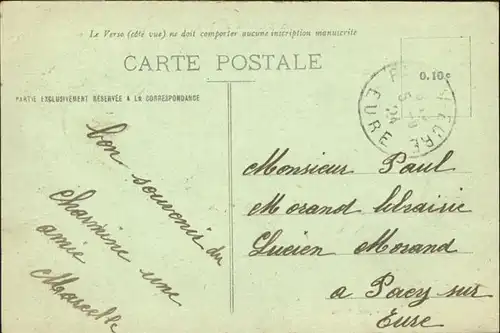 Le Verso (côté vue) ne doit comporter aucune inscription manuscrite
CARTE POSTALE
PARTIE EXCLUSIVEMENT RÉSERVÉE A LA CORRESPONDANCE
0.10c
EURE
bon souvenir du
une
amie
Marcelle
Monsieur Paul
Morand librairie
Lucien Morand
a Pacy sur
Eure